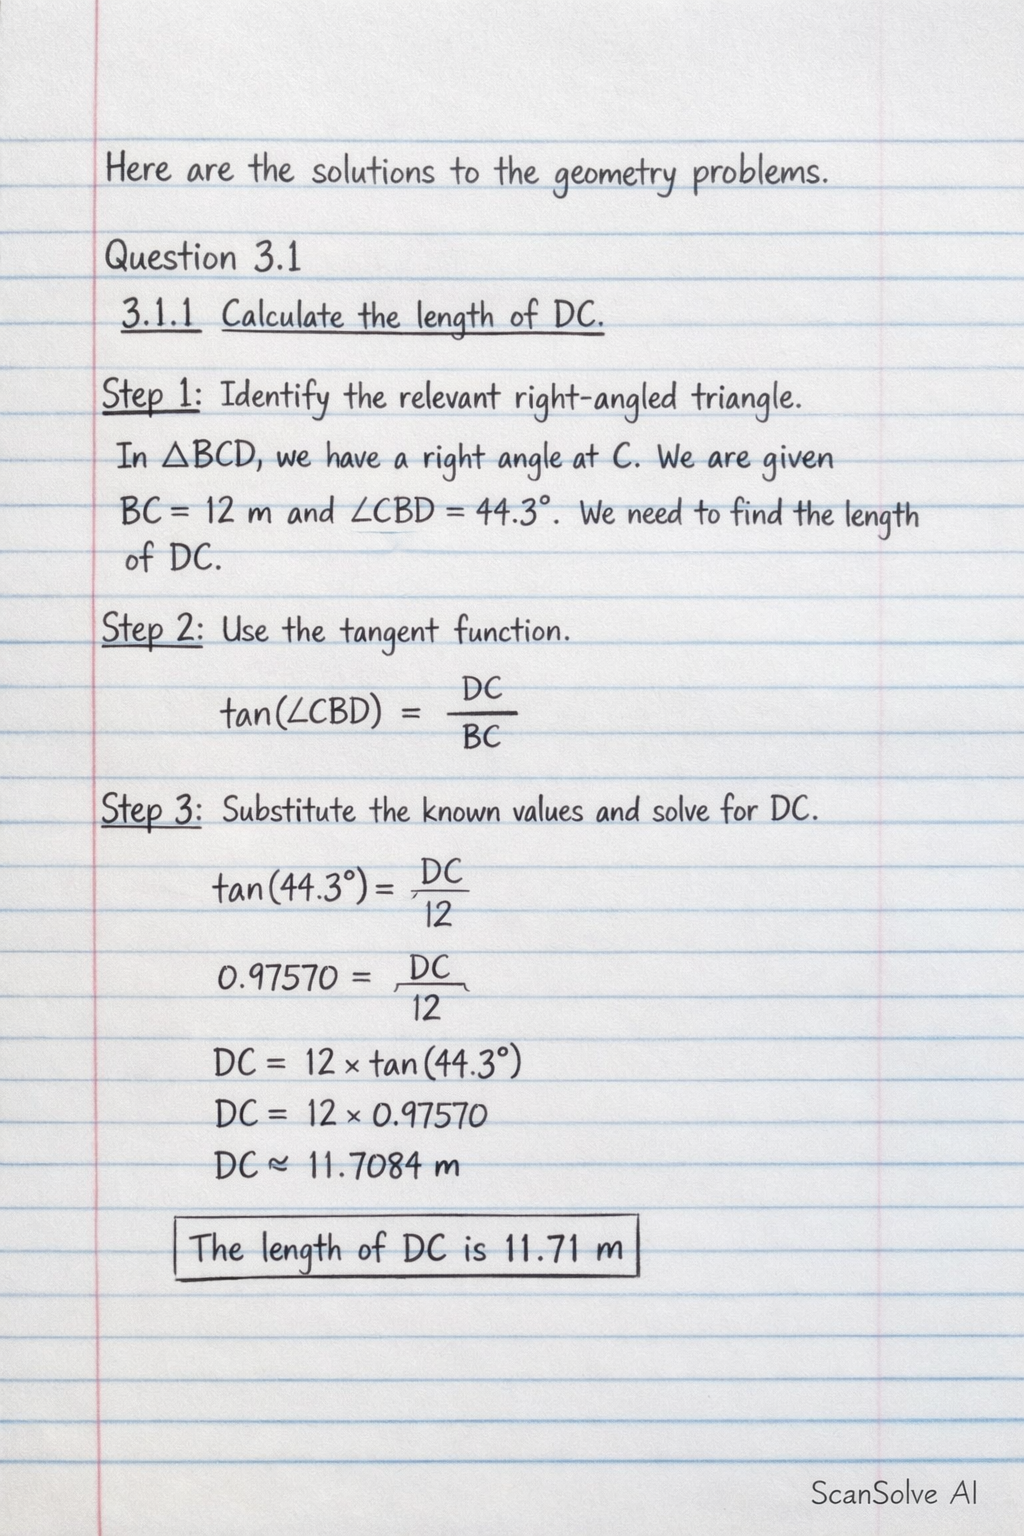 Here are the solutions to the geometry problems.
Question 3.1
3.1.1 Calculate the length of DC.
Step 1: Identify the relevant right-angled triangle.
In △BCD, we have a right angle at C. We are given
BC = 12 m and ∠CBD = 44.3°. We need to find the length
of DC.
Step 2: Use the tangent function.
tan(∠CBD) = DC/BC
Step 3: Substitute the known values and solve for DC.
tan(44.3°) = DC/12
0.97570 = DC/12
DC = 12 × tan(44.3°)
DC = 12 × 0.97570
DC ≈ 11.7084 m
The length of DC is 11.71 m
ScanSolve AI